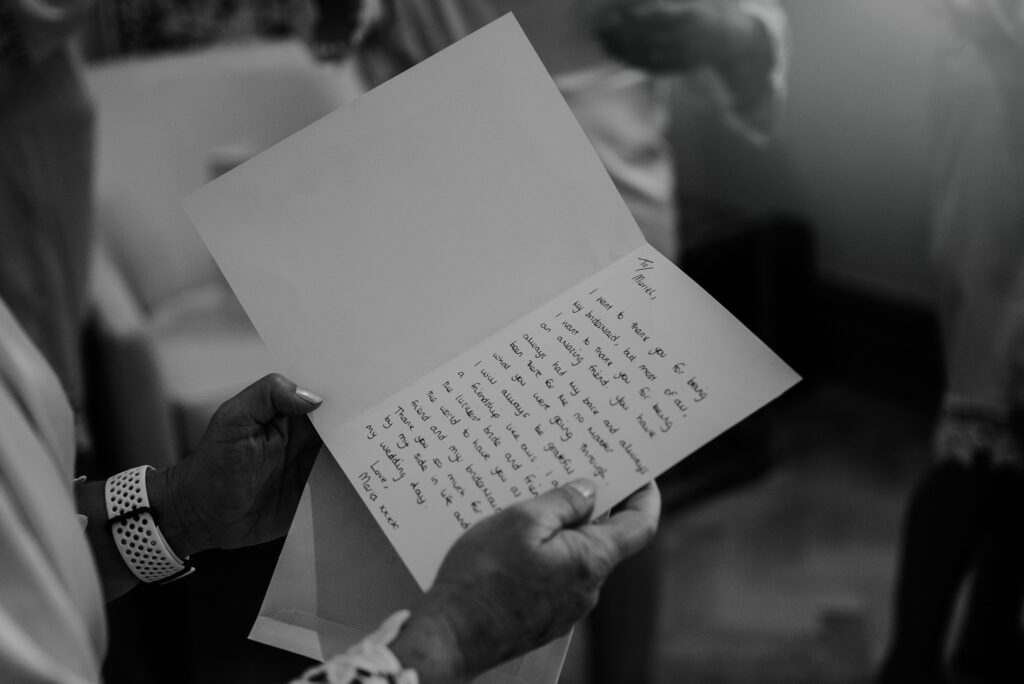 To/
Muriel,
I want to thank you for being
my bridesmaid, but most of all,
I want to thank you for being
an amazing friend. You have
always had my back and always
been there for me no matter
what you were going through.
I will always be grateful
a friendship like ours. I a
the luckiest bride and frien
the world to have you as
friend and my bridesmaid
Thank you so much for
by my side in life and
my wedding day.
Love,
Maria xxxx